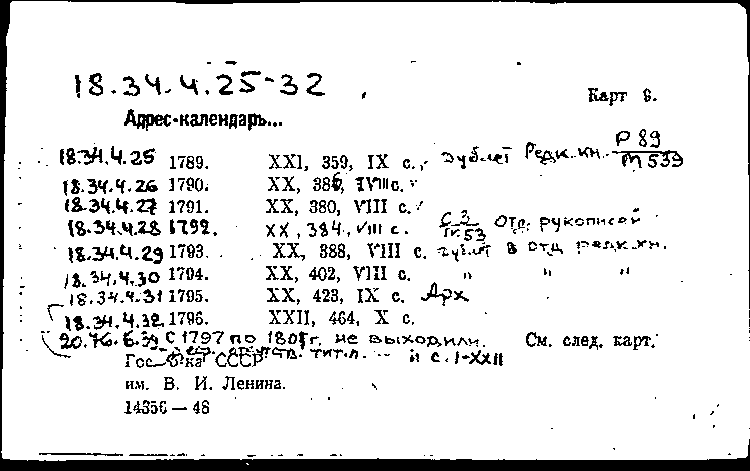 18.34.4.25-32
Карт 6.
Адрес-календарь...
18.34.4.25 1789. XXI, 359, IX с., дублет Редк. кн. Р 89 / М 539
18.34.4.26 1790. XX, 386, IVIII с.
18.34.4.27 1791. XX, 380, VIII с.
18.34.4.28 1792. XX, 384, VIII с. С 3 / IV 53 Отд. рукописей
18.34.4.29 1793. XX, 388, VIII с. дублет в отд редк. кн.
18.34.4.30 1794. XX, 402, VIII с. " " "
18.34.4.31 1795. XX, 423, IX с. Арх
18.34.4.32 1796. XXII, 464, X с.
С 1797 по 1801 г. не выходили. См. след. карт.
тит. л. и с. I-XXII
СССР
им. В. И. Ленина.
14356 — 48